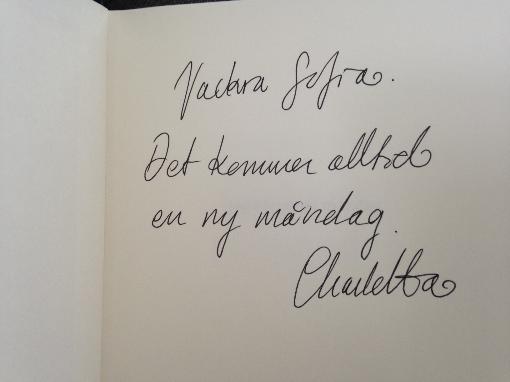 Vackra Sofia.
Det kommer alltid
en ny måndag.
Charlotta